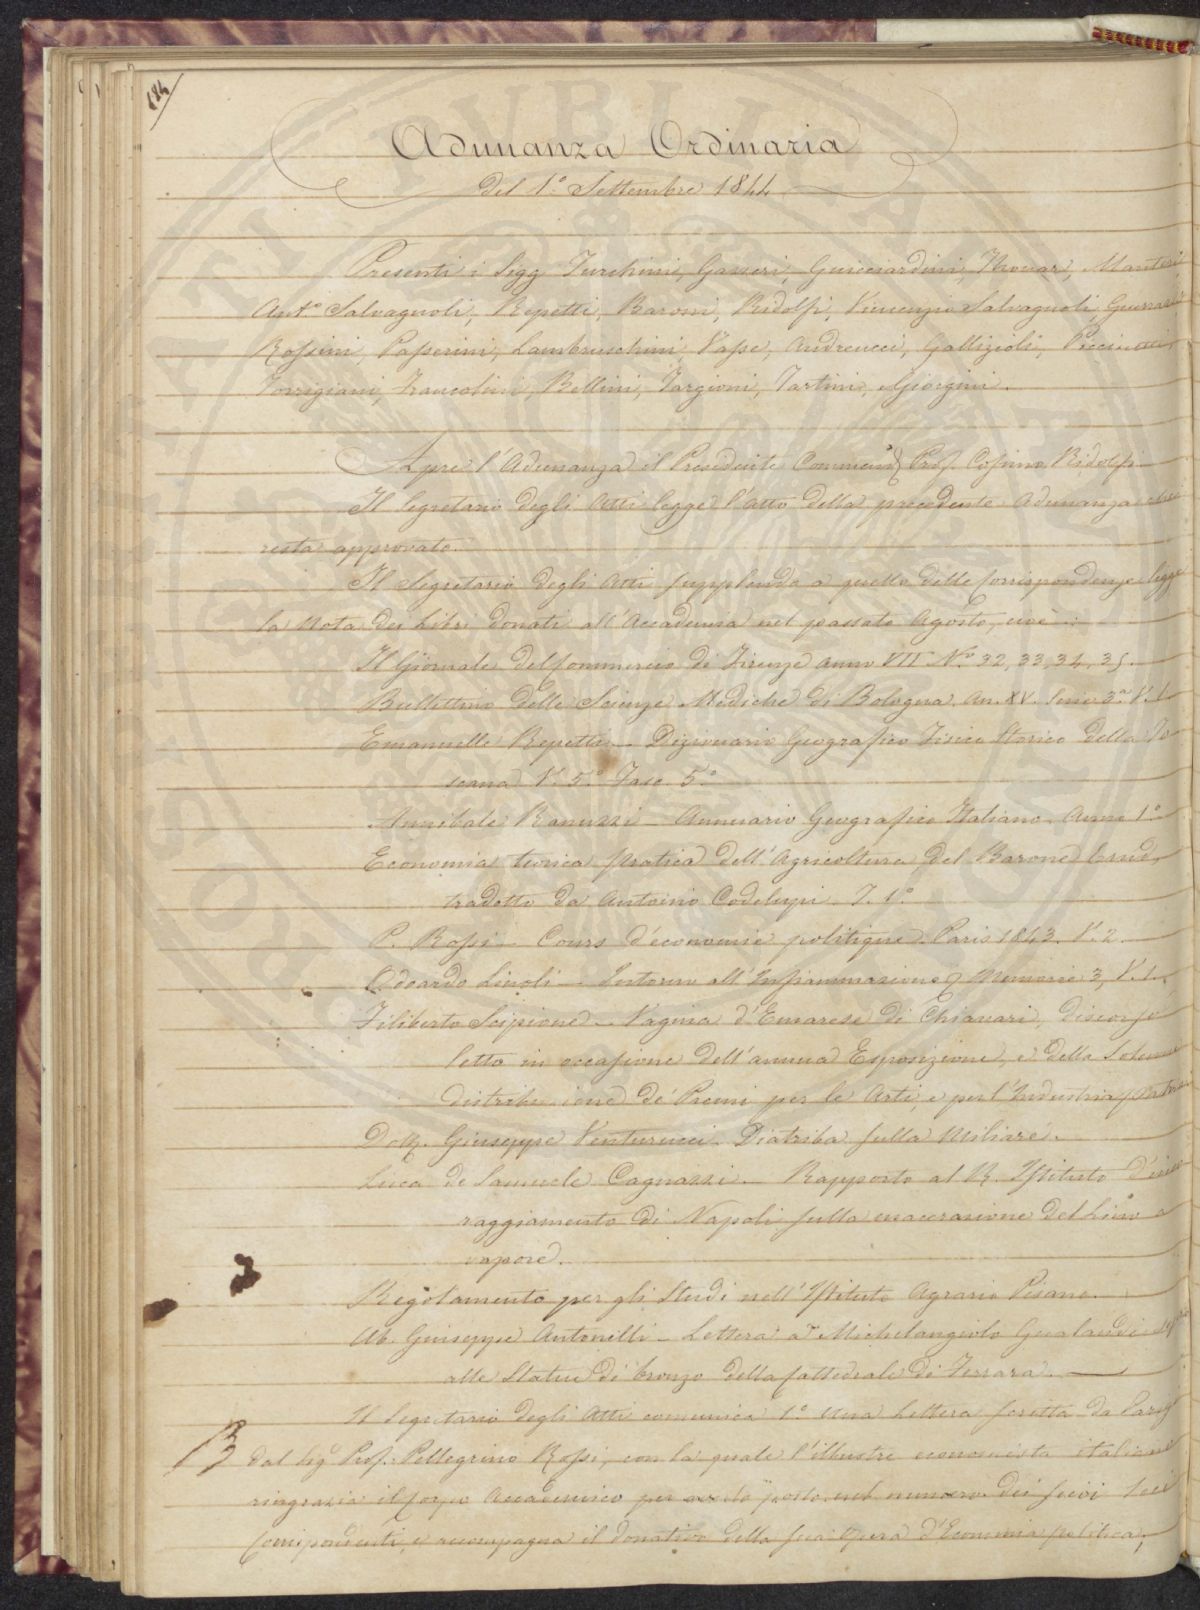 184
Adunanza Ordinaria
del 1.° Settembre 1844
Presenti i Sigg. Turchini, Gazzeri, Guicciardini, Thouar, Manteri,
Ant.° Salvagnoli, Repetti, Baroni, Ridolfi, Vincenzio Salvagnoli, Guerrazzi
Rossini, Passerini, Lambruschini, Vasse, Andreucci, Gallizioli, Puccinotti,
Torrigiani, Franceschini, Bellini, Targioni, Tartini, Giorgini.
Apre l'Adunanza il Presidente Commend. Prof. Cosimo Ridolfi
Il Segretario degli Atti legge l'atto della precedente Adunanza che
resta approvato.
Il Segretario degli Atti supplendo a quello delle Corrispondenze legge
la Nota dei Libri donati all'Accademia nel passato Agosto, cioè:
Il Giornale del Commercio di Firenze anno VII N.° 32, 33, 34, 35.
Bullettino delle Scienze Mediche di Bologna. An. XV. Serie 3.a V. 6
Emanuelle Repetti - Dizionario Geografico Fisico Storico della To
scana V. 5.° Fasc. 5.°
Annibale Ranuzzi - Annuario Geografico Italiano Anno 1.°
Economia teorica pratica dell'Agricoltura del Barone Crud,
tradotto da Antonio Codelupi T. 1.°
P. Rossi - Cours d'economie politique. Paris 1843. V. 2.
Odoardo Linoli - Intorno all'Infiammazione Memorie 3, V. 1.
Filiberto Scipione - Vagina d'Emarese di Chiavari, discorso
letto in occasione dell'annua Esposizione, e della Solenne
distribuzione de' Premi per le Arti, e per l'Industria
Dott. Giuseppe Venturucci. Diatriba sulla Miliare.
Luca de Samuele Cagnazzi - Rapporto al R. Istituto d'inco
raggiamento di Napoli sulla macerazione del Lino a
vapore.
Regolamento per gli Studi nell'Istituto Agrario Pisano.
Ab. Giuseppe Antonelli - Lettera a Michelangiolo Gualandi
alle Statue di bronzo della Cattedrale di Ferrara.
Il Segretario degli Atti comunica 1.° una Lettera scritta da Parigi
dal Sig.r Prof. Pellegrino Rossi, con la quale l'illustre economista italiano
ringrazia il Corpo Accademico per averlo posto nel numero dei suoi Soci
Corrispondenti, e accompagna il donativo della sua Opera d'Economia politica;